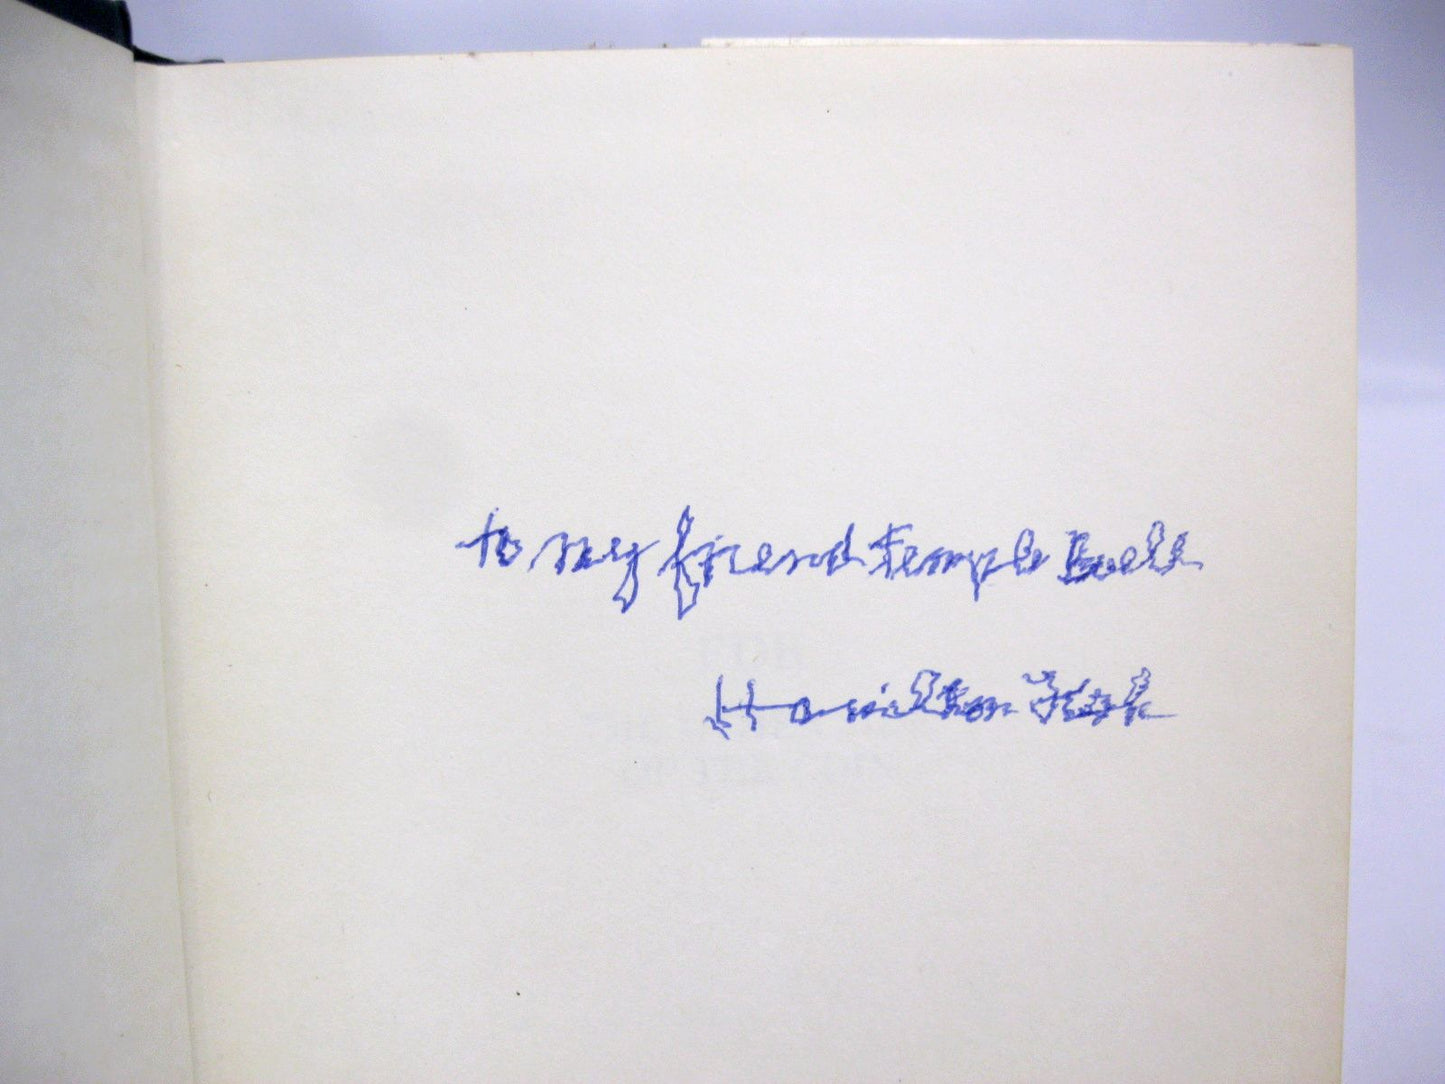 to my friend Temple Buell
Hamilton Fish